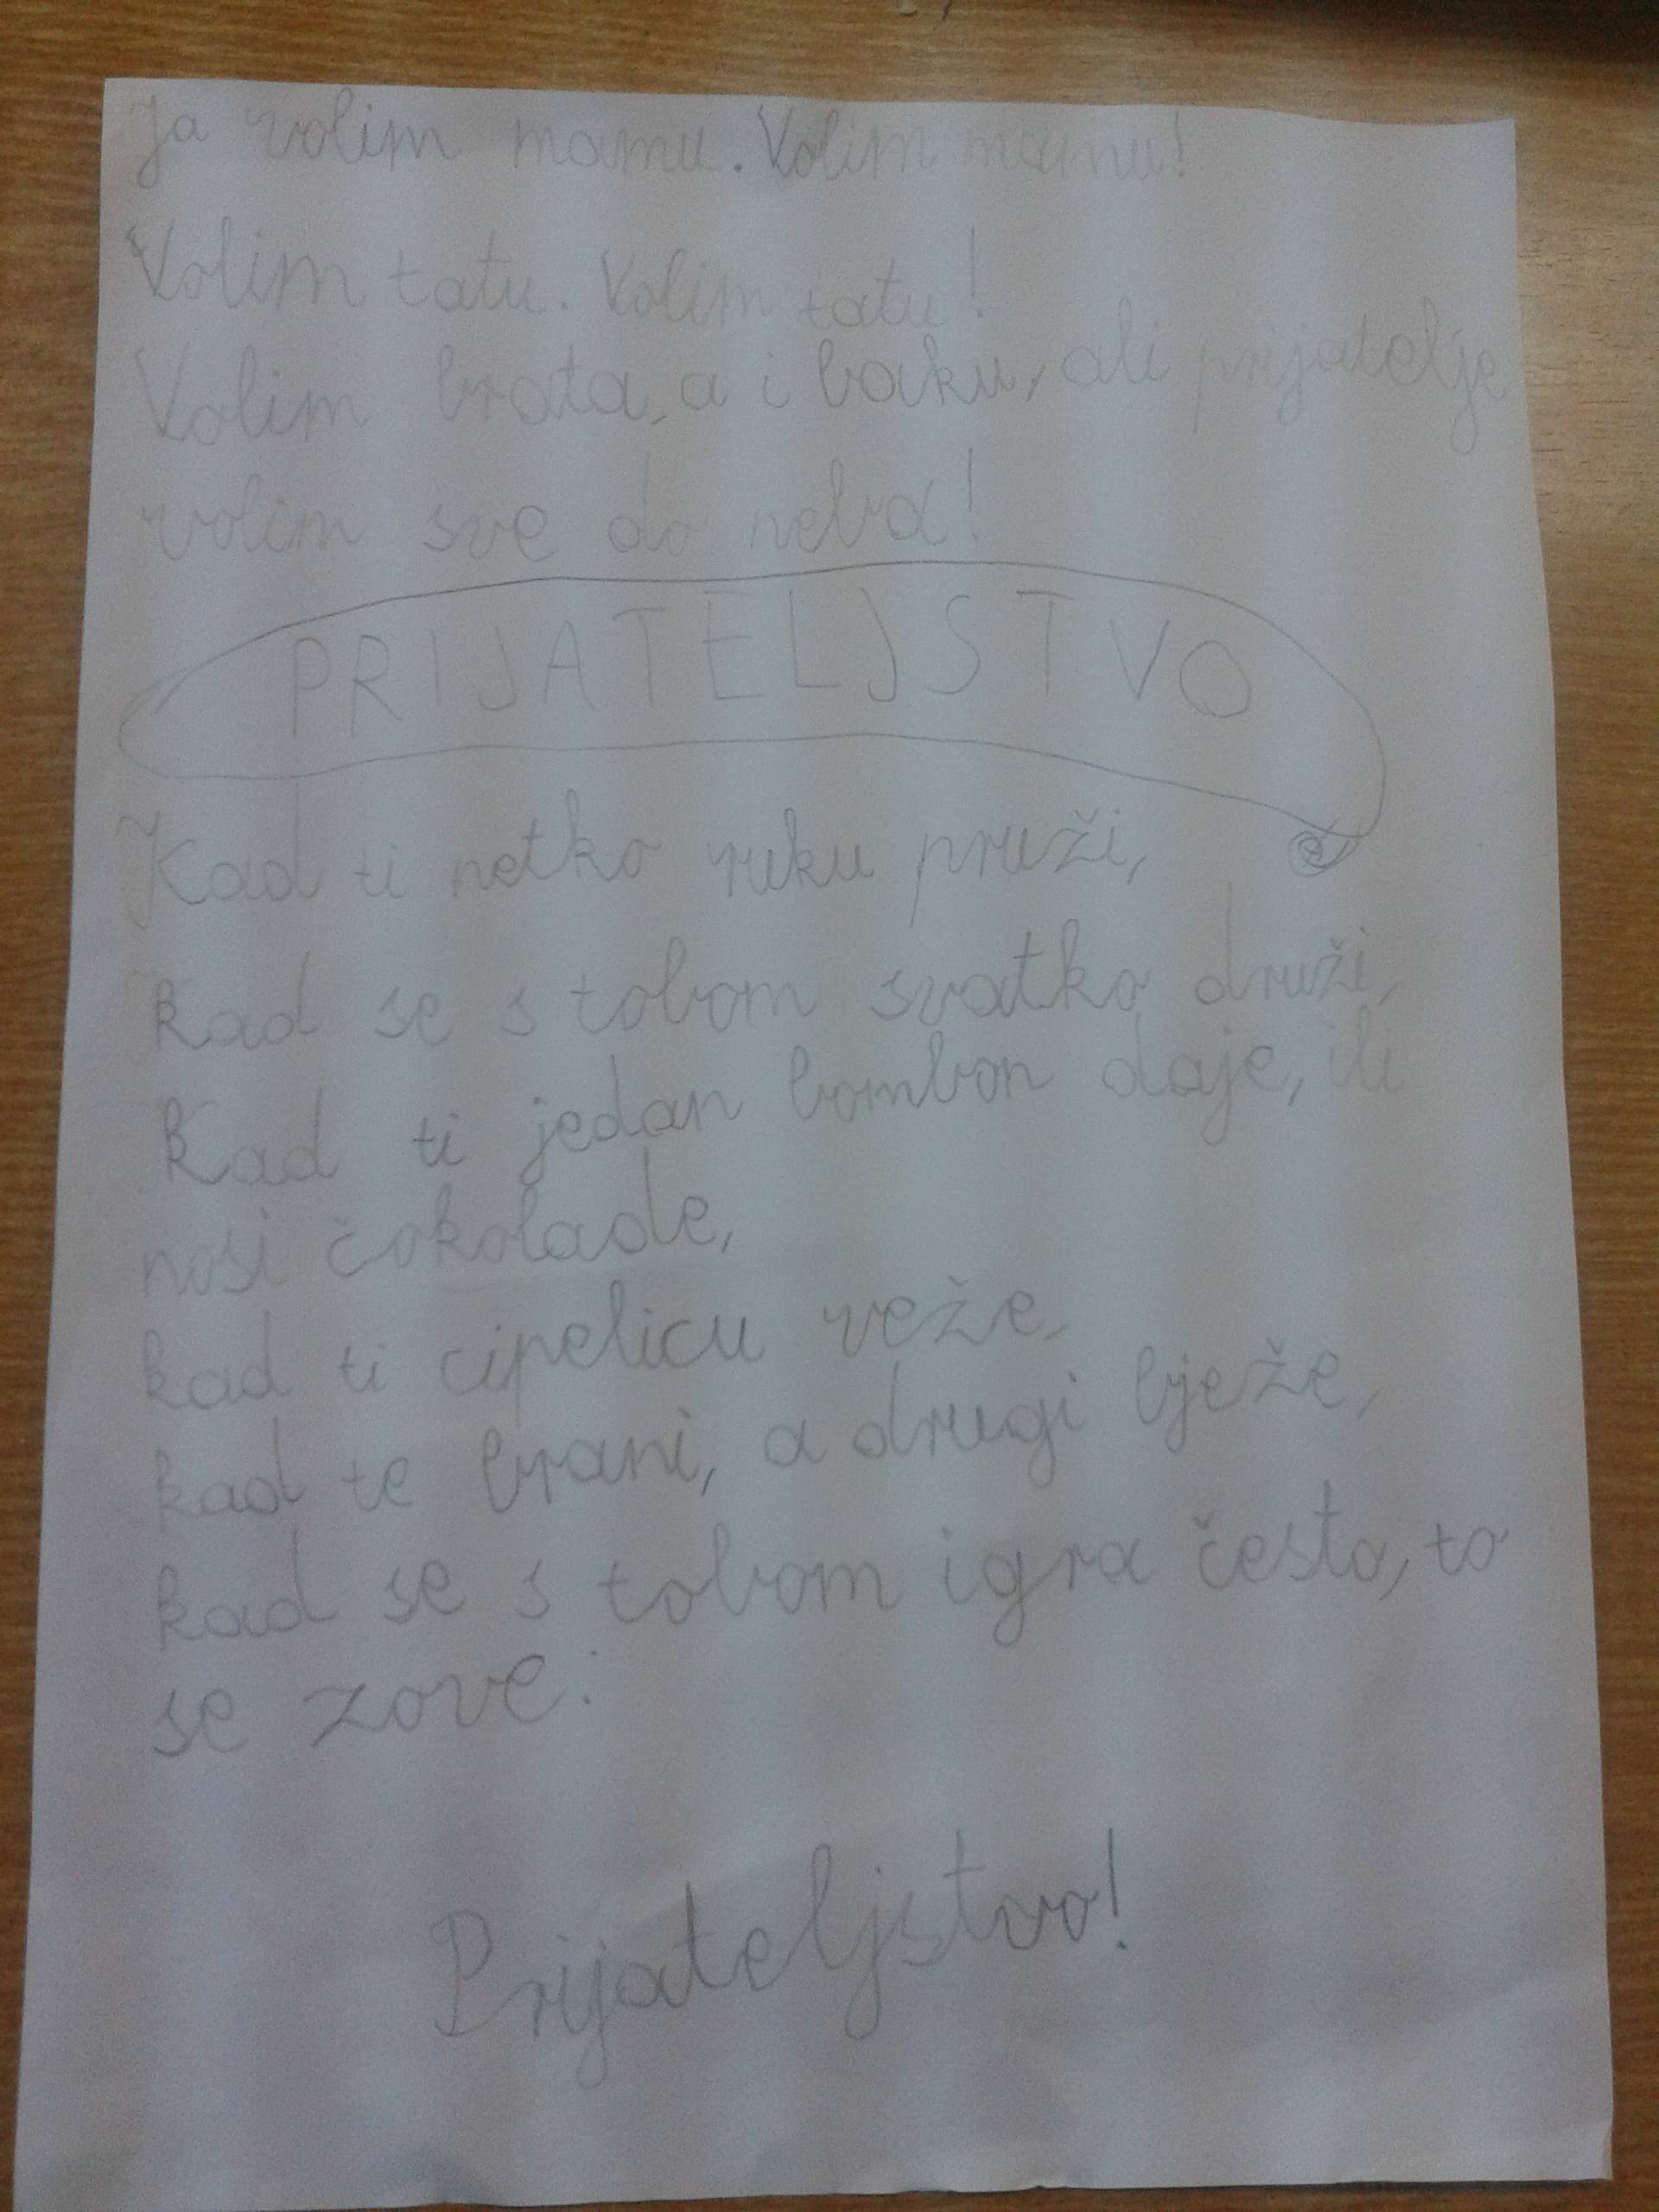 Ja volim mamu. Volim mamu!
Volim tatu. Volim tatu!
Volim brata, a i baku, ali prijatelje
volim sve do neba!
PRIJATELJSTVO
Kad ti netko ruku pruži,
kad se s tobom svatko druži,
kad ti jedan bombon daje, ili
nosi čokolade,
kad ti cipelicu veže,
kad te brani, a drugi bježe,
kad se s tobom igra često, to
se zove:
Prijateljstvo!